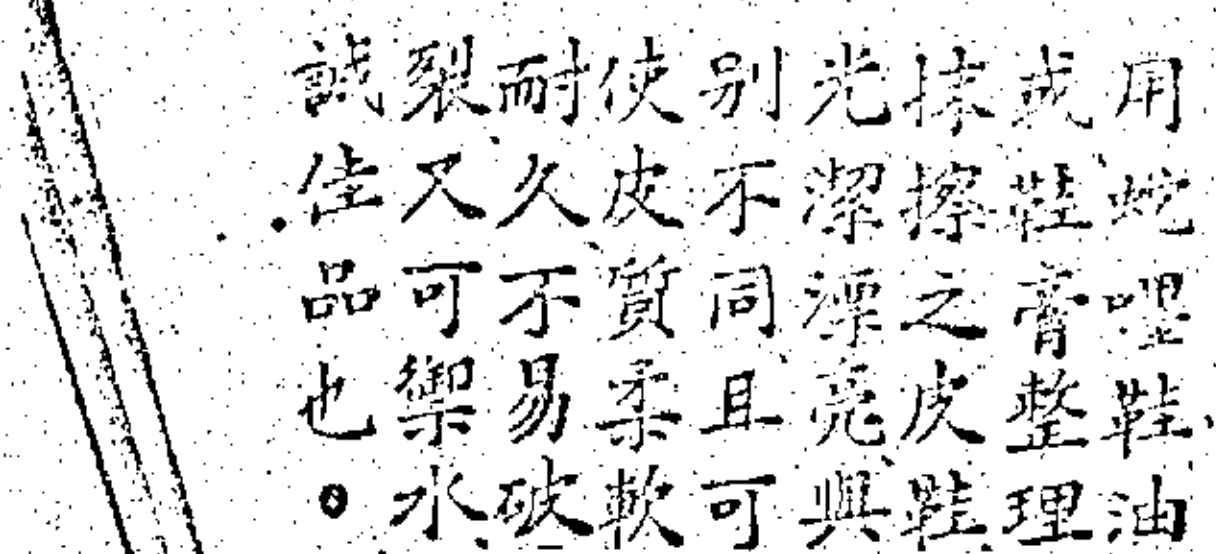 用蛇哩鞋油
或鞋膏整理
抹擦之皮鞋
光潔漂亮與
别不同且可
使皮質柔軟
耐久不易破
裂又可禦水
誠佳品也。